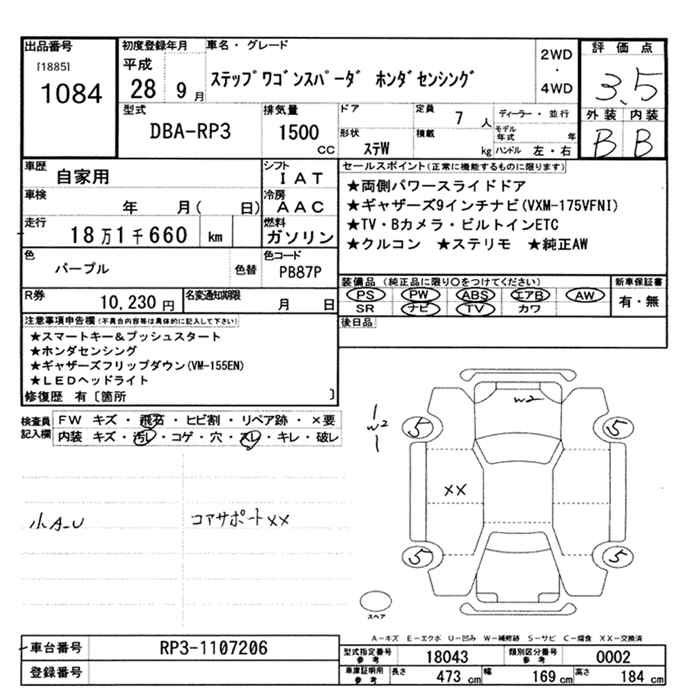 出品番号
[1885]
1084
初度登録年月
平成
28 9月
車名・グレード
ステップワゴンスパーダ ホンダセンシング
2WD
・
4WD
評価点
3.5
外装 内装
B B
型式
DBA-RP3
排気量
1500
CC
ドア
形状
ステW
定員
7 人
積載
kg
ディーラー・並行
モデル年式 年
ハンドル 左・右
車歴
自家用
シフト
IAT
車検
年 月( 日)
冷房
AAC
走行
18万1千660 km
燃料
ガソリン
色
パープル
色替
色コード
PB87P
R券
10,230円
名変通知期限
月 日
セールスポイント(正常に機能するものに限ります)
★両側パワースライドドア
★ギャザーズ9インチナビ(VXM-175VFNI)
★TV・Bカメラ・ビルトインETC
★クルコン ★ステリモ ★純正AW
装備品(純正品に限り○をつけてください)
PS PW ABS エアB AW
SR ナビ TV カワ
新車保証書
有・無
後日品
注意事項申告欄(不具合内容等は具体的に記入して下さい)
★スマートキー&プッシュスタート
★ホンダセンシング
★ギャザーズフリップダウン(VM-155EN)
★LEDヘッドライト
修復歴 有〔箇所 〕
検査員記入欄
FW キズ・飛石・ヒビ割・リペア跡・×要
内装 キズ・汚レ・コゲ・穴・スレ・キレ・破レ
小A-U
コアサポートXX
W2
W2
5
5
XX
5
5
スペア
A-キズ E-エクボ U-凹み W-補修跡 S-サビ C-腐食 XX-交換済
車台番号
RP3-1107206
登録番号
型式指定番号
参考
18043
類別区分番号
参考
0002
車庫証明用
参考
長さ 473 cm 幅 169 cm 高さ 184 cm